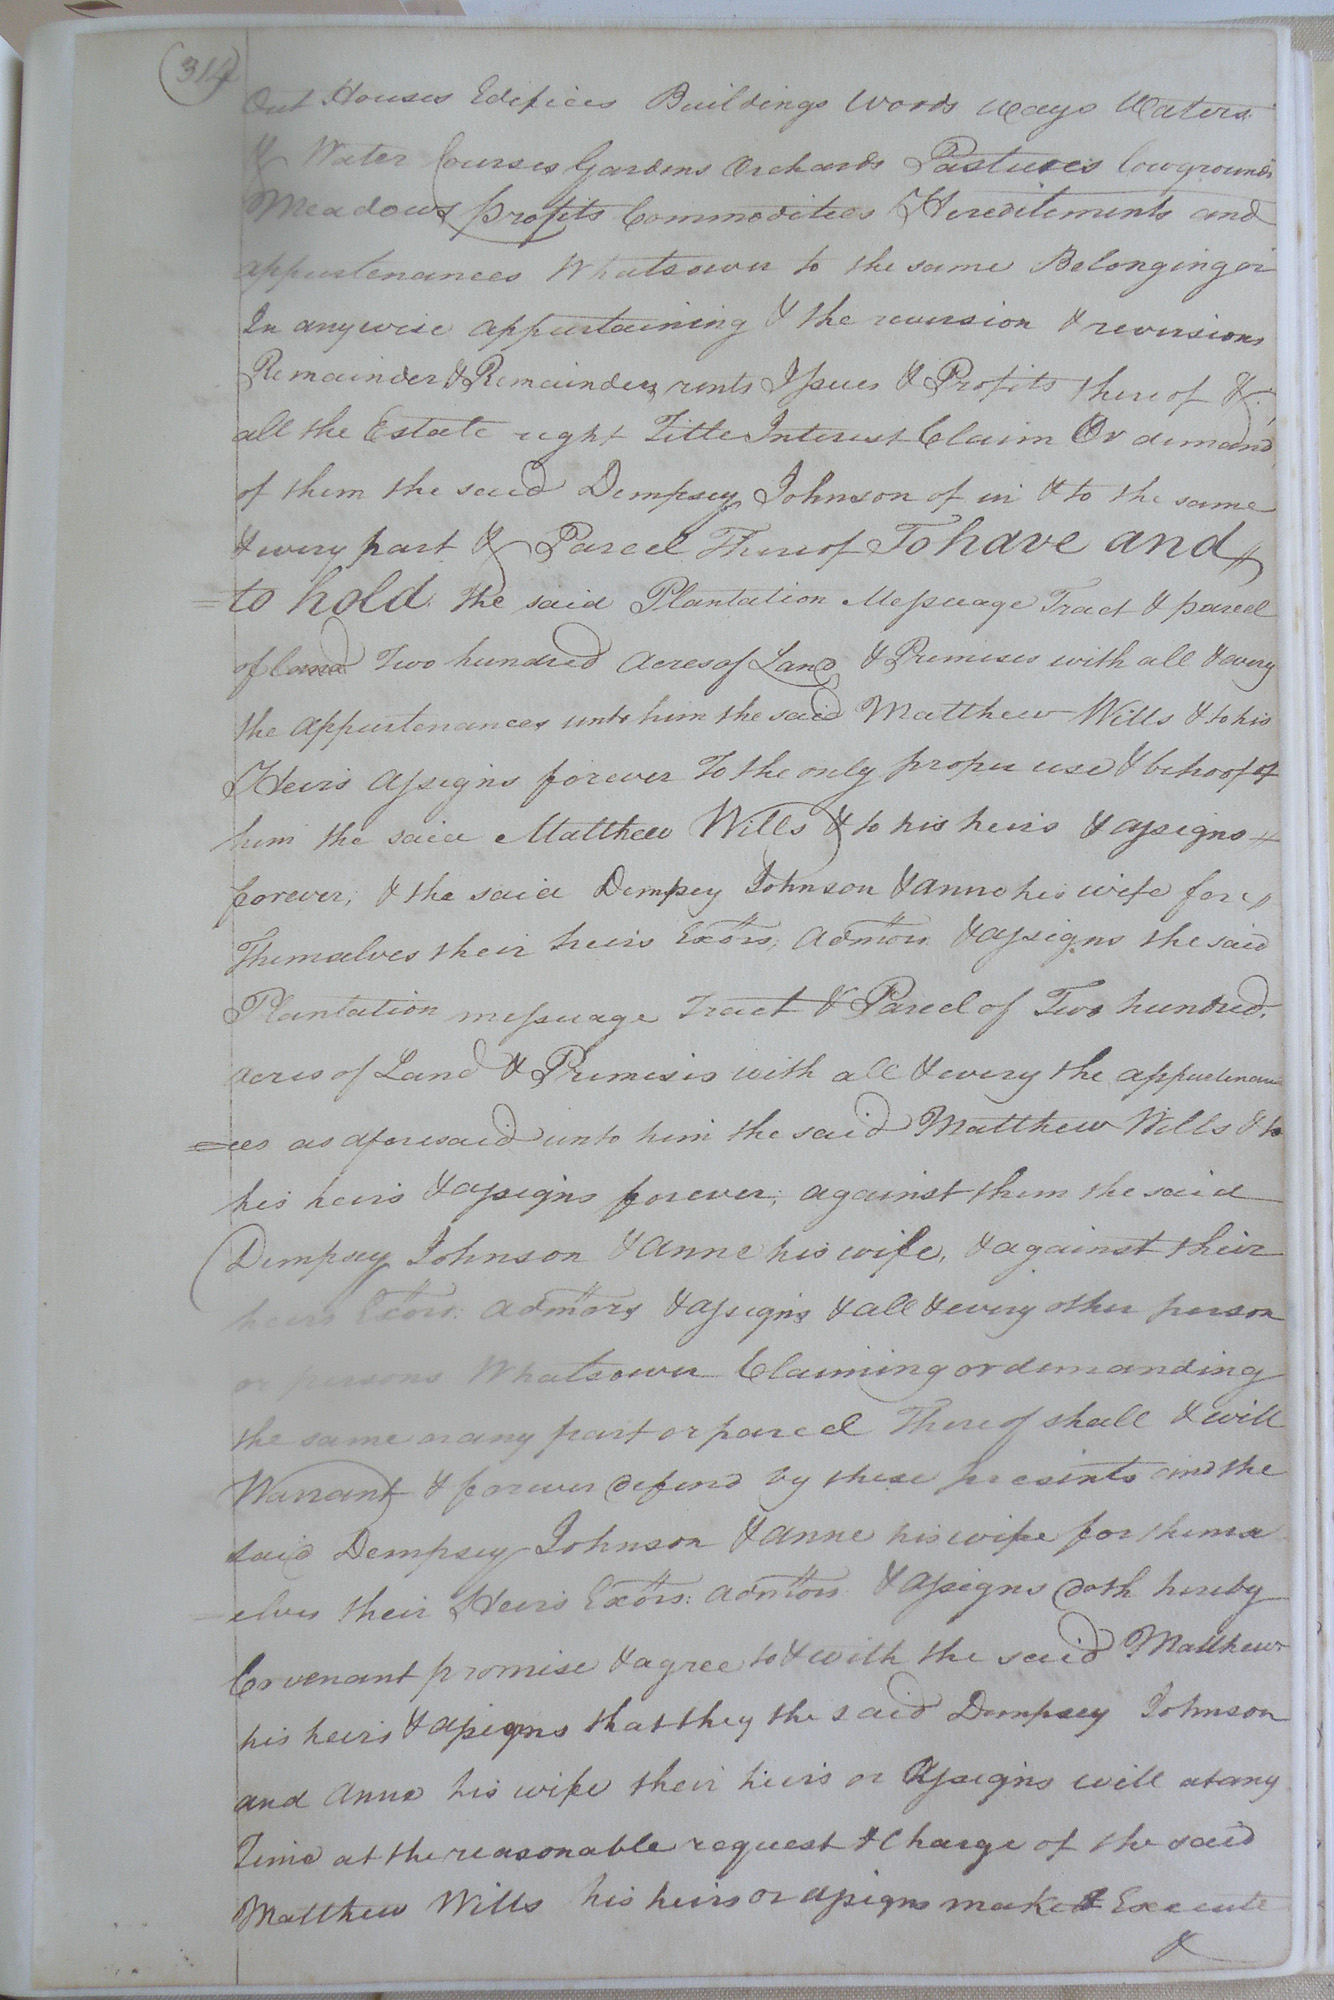 314
Out Houses Edifices Buildings Woods ways Waters
& Water Courses Gardens Orchards Pastures lowgrounds
Meadows profits Commodities Hereditements and
appurtenances Whatsoever to the same Belonging or
In any wise appurtaining & the reversion & reversions
Remainder & Remainders rents Issues & Profits thereof &
all the Estate right Title Interest Claim Or demand
of them the said Dempsey Johnson of in & to the same
& every part & Parcel Thereof To have and
=to hold. the said Plantation Messuage Tract & parcel
of land Two hundred Acres of Land & Premises with all & every
the appurtenances unto him the said Matthew Wills & to his
Heirs assigns forever To the only proper use & behoof of
him the said Matthew Wills & to his heirs & assigns
forever; & the said Dempsey Johnson & Anne his wife for
Themselves their heirs Exors, admors & assigns the said
Plantation messuage Tract & Parcel of Two hundred.
acres of Land & Premises with all & every the appurtenan
=ces as aforesaid unto him the said Matthew Wills & to
his heirs & assigns forever; against them the said
Dempsey Johnson & Anne his wife, & against their
heirs Exors. admors & assigns & all & every other person
or persons Whatsoever Claiming or demanding
the same or any part or parcel Thereof shall & will
Warrant & forever defend by these presints and the
said Dempsey Johnson & Anne his wife for thems
=elves their Heirs Exors: admors & assigns doth hereby
Covenant promise & agree to & with the said Matthew
his heirs & assigns that they the said Dempsey Johnson
and Anne his wife their heirs or Assigns will at any
Time at the reasonable request & Charge of the said
Matthew Wills his heirs or assigns make & Execute
&